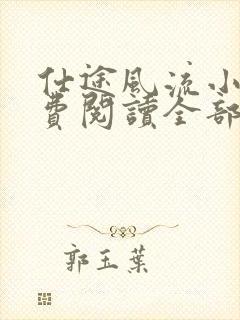 仕途风流小
費閱讀全部
郭玉葉